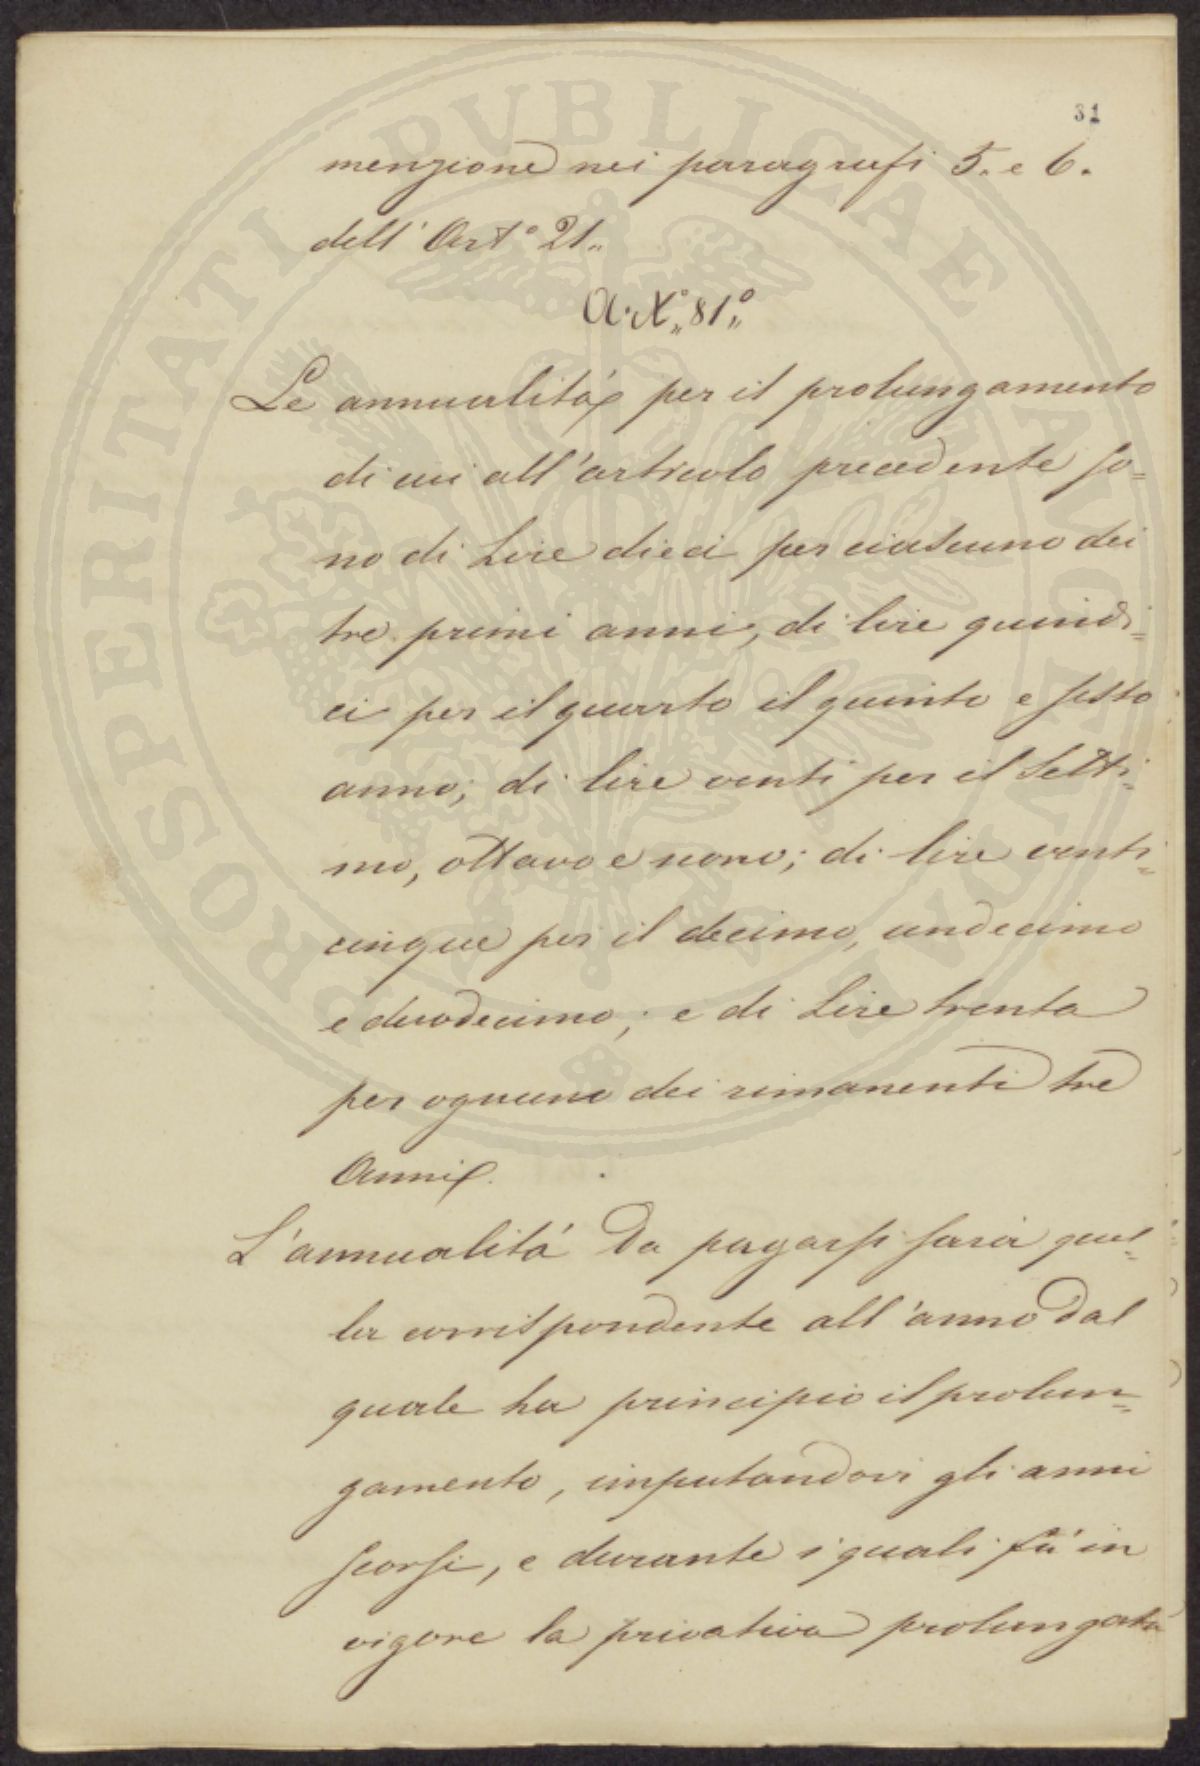 31
menzione nei paragrafi 5. e 6.
dell' Art.° 21.,
A. N.° 81.°
Le annualità per il prolungamento
di cui all'articolo precedente so=
no di Lire dieci per ciascuno dei
tre primi anni, di lire quindi=
ci per il quarto il quinto e sesto
anno; di lire venti per il Setti=
mo, ottavo e nono; di lire venti=
cinque per il decimo, undecimo
e duodecimo; e di Lire trenta
per ognuno dei rimanenti tre
Anni.
L'annualità da pagarsi sarà quel=
la corrispondente all'anno dal
quale ha principio il prolun=
gamento, imputandovi gli anni
scorsi, e durante i quali fù in
vigore la privativa prolungata
PROSPERITATI PUBLICAE AUGENDAE